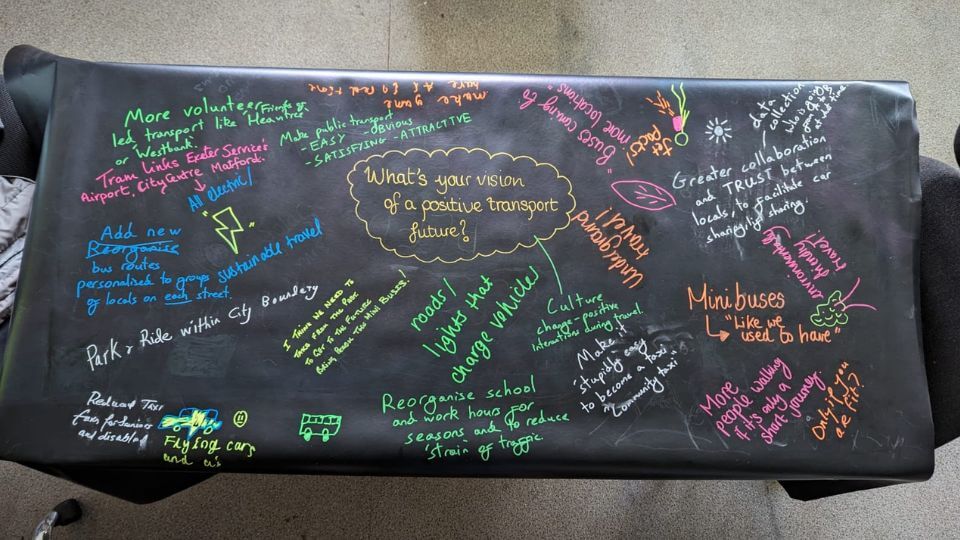 What's your vision
of a positive transport
future?
More volunteer
Friends of
led transport like Heavitree
or Westbank.
Tram Links Exeter Services
Airport, City Centre Matford.
All electric/
sustainable travel
Make public transport
- EASY - OBVIOUS
- SATISFYING - ATTRACTIVE
make
have
real time
"Buses coming to
more locations"
Jet
Packs!
data
collection
who is going
to
at what time
Greater collaboration
and TRUST between
locals, to facilitate car
sharing.
Underground
travel!
environmentally
friendly
travel!
Add new
Reorganise
bus routes
personalised to groups
of locals on each street.
Park & Ride within City Boundary
I THINK WE NEED TO
TAKE FROM THE PAST
TO GET TO THE FUTURE
BRING BACK THE MINI BUSES!
roads/
lights that
charge vehicles
Culture
change - positive
interactions during travel
Make it
"stupidly easy"
to become a taxi
"Community taxi"
Minibuses
"Like we
used to have"
More
people walking
if it's only a
short journey
Only if you
are Fit?
Reduced Taxi
fares for Seniors
and disabled
Flying cars
Reorganise school
and work hours for
seasons and to reduce
strain of traffic